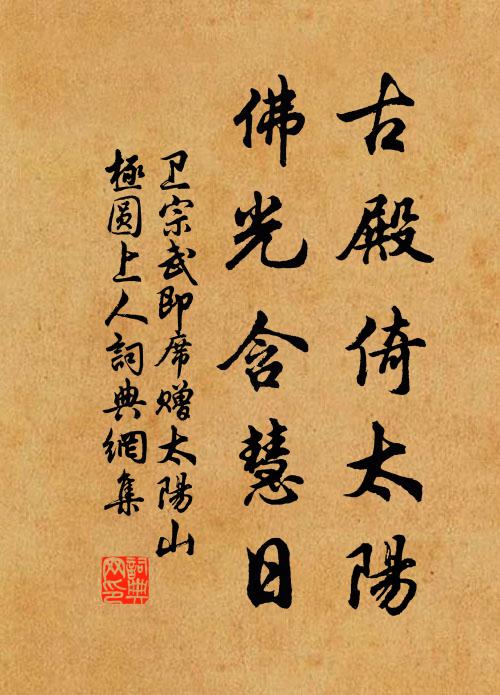 古殿倚太陽
佛光含慧日
卫宗武即席赠太陽山
極圓上人詞典網集
詞典
网印